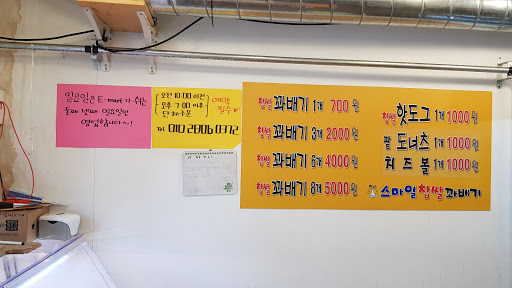 일요일은 E-mart가 쉬는
둘째 넷째 일요일만
영업합니다~
오전 10:00 이전
오후 7:00 이후
단체주문
예약
필수
Tel. 010 2806 0372
찹쌀 꽈배기 1개 700원
찹쌀 꽈배기 3개 2000원
찹쌀 꽈배기 6개 4000원
찹쌀 꽈배기 8개 5000원
찹쌀 핫도그 1개 1000원
팥 도너츠 1개 1000원
치즈볼 1개 1000원
스마일 찹쌀 꽈배기